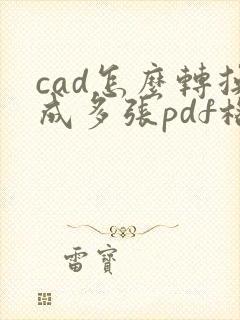 cad怎麼轉換
成多張pdf格
雷寶